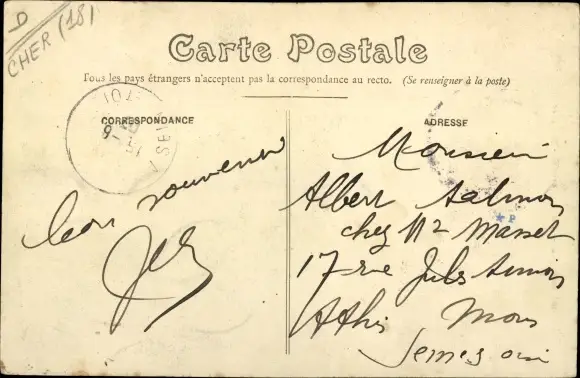 D
CHER (18)
Carte Postale
Tous les pays étrangers n'acceptent pas la correspondance au recto. (Se renseigner à la poste)
CORRESPONDANCE
bon souvenir
ADRESSE
Monsieur
Albert Salmon
chez Mr Masset
17 rue Jules
Athis Mons